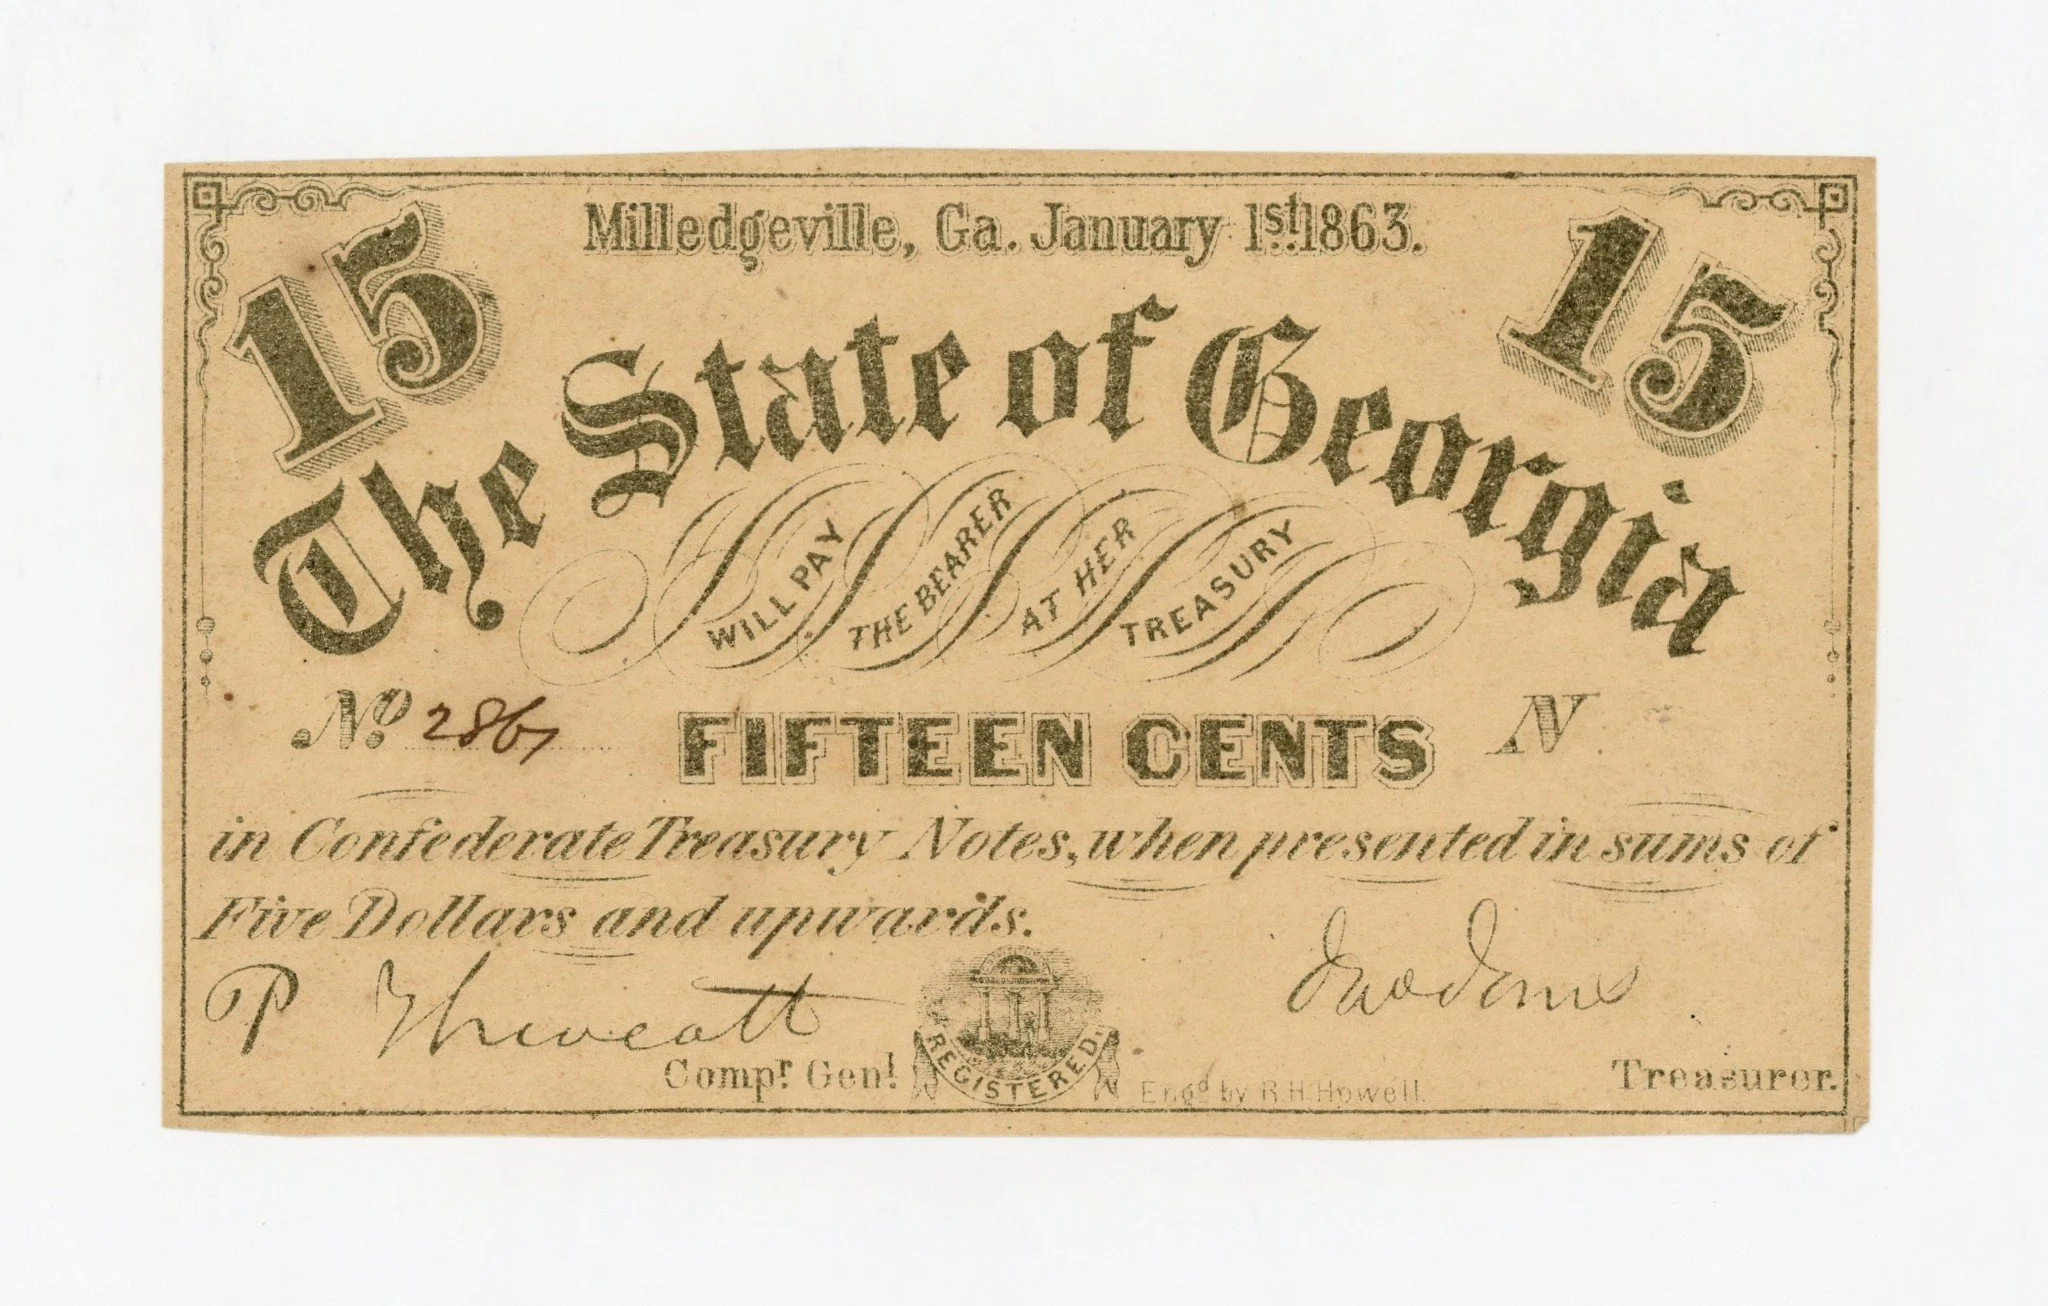 Milledgeville, Ga. January 1st. 1863.
15
15
The State of Georgia
WILL PAY
THE BEARER
AT HER
TREASURY
No. 2867
FIFTEEN CENTS
N
in Confederate Treasury Notes, when presented in sums of
Five Dollars and upwards.
P Thweatt
Jno Jones
Comp.r Gen.l
REGISTERED.
Eng.d by R. H. Howell.
Treasurer.